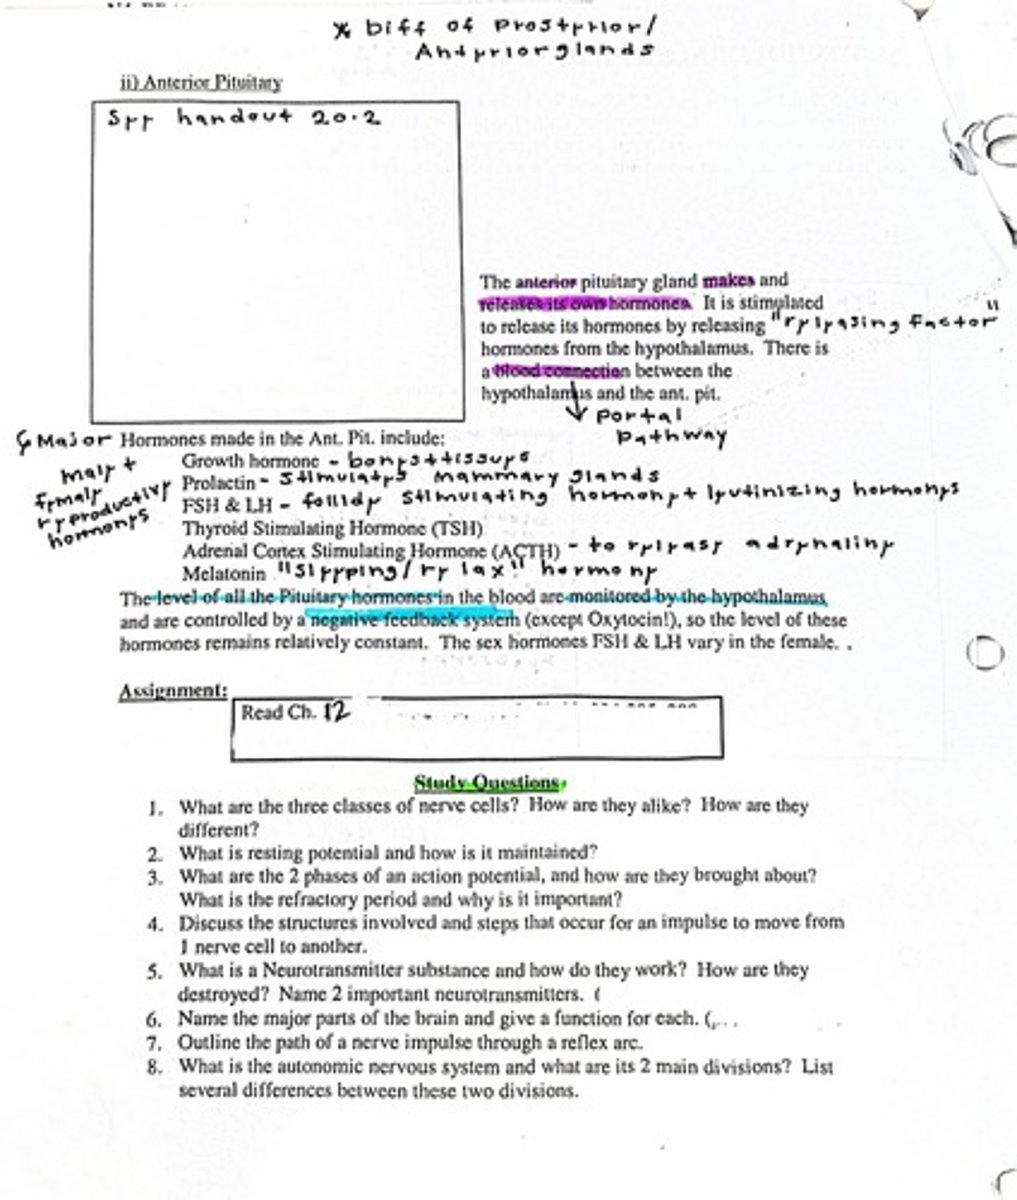 * Diff of Prostprior/
Antpriorglands
ii) Anterior Pituitary
Spp handout 20.2
The anterior pituitary gland makes and
releases its own hormones. It is stimulated
to release its hormones by releasing "releasing factor"
hormones from the hypothalamus. There is
a blood connection between the
hypothalamus and the ant. pit.
portal
pathway
Major Hormones made in the Ant. Pit. include:
Growth hormone - bones + tissues
male +
female
reproductive
hormones
Prolactin - stimulates mammary glands
FSH & LH - follide stimulating hormone + leutinizing hormones
Thyroid Stimulating Hormone (TSH)
Adrenal Cortex Stimulating Hormone (ACTH) - to release adrenaline
Melatonin "sleeping/relax" hormone
The level of all the Pituitary hormones in the blood are monitored by the hypothalamus
and are controlled by a negative feedback system (except Oxytocin!), so the level of these
hormones remains relatively constant. The sex hormones FSH & LH vary in the female. .
Assignment:
Read Ch. 12
Study Questions
1. What are the three classes of nerve cells? How are they alike? How are they
different?
2. What is resting potential and how is it maintained?
3. What are the 2 phases of an action potential, and how are they brought about?
What is the refractory period and why is it important?
4. Discuss the structures involved and steps that occur for an impulse to move from
1 nerve cell to another.
5. What is a Neurotransmitter substance and how do they work? How are they
destroyed? Name 2 important neurotransmitters. (
6. Name the major parts of the brain and give a function for each. (
7. Outline the path of a nerve impulse through a reflex arc.
8. What is the autonomic nervous system and what are its 2 main divisions? List
several differences between these two divisions.